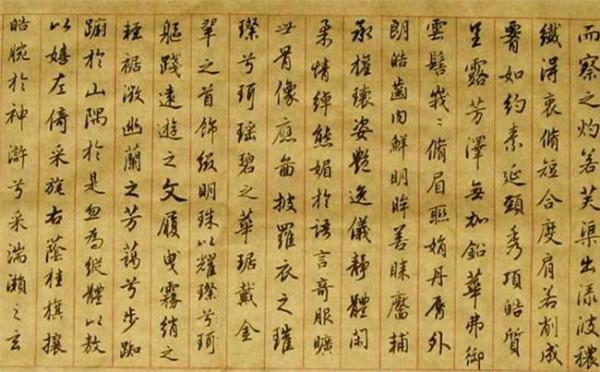 而察之灼若芙渠出渌波穠
纖得衷脩短合度肩若削成
腰如約素延頸秀項皓質
呈露芳澤無加鉛華弗御
雲髻峩々脩眉聯娟丹脣外
朗皓齒内鮮明眸善睞靨輔
承權瓌姿艷逸儀靜體閑
柔情綽態媚於語言奇服曠
世骨像應圖披羅衣之璀
璨兮珂瑶碧之華琚戴金
翠之首飾綴明珠以耀璨兮珂
軀踐遠遊之文履曳霧綃之
輕裾微幽蘭之芳藹兮步踟
蹰於山隅於是忽焉縱體以敖
以嬉左倚采旄右蔭桂旗攘
皓腕於神滸兮采湍瀨之玄